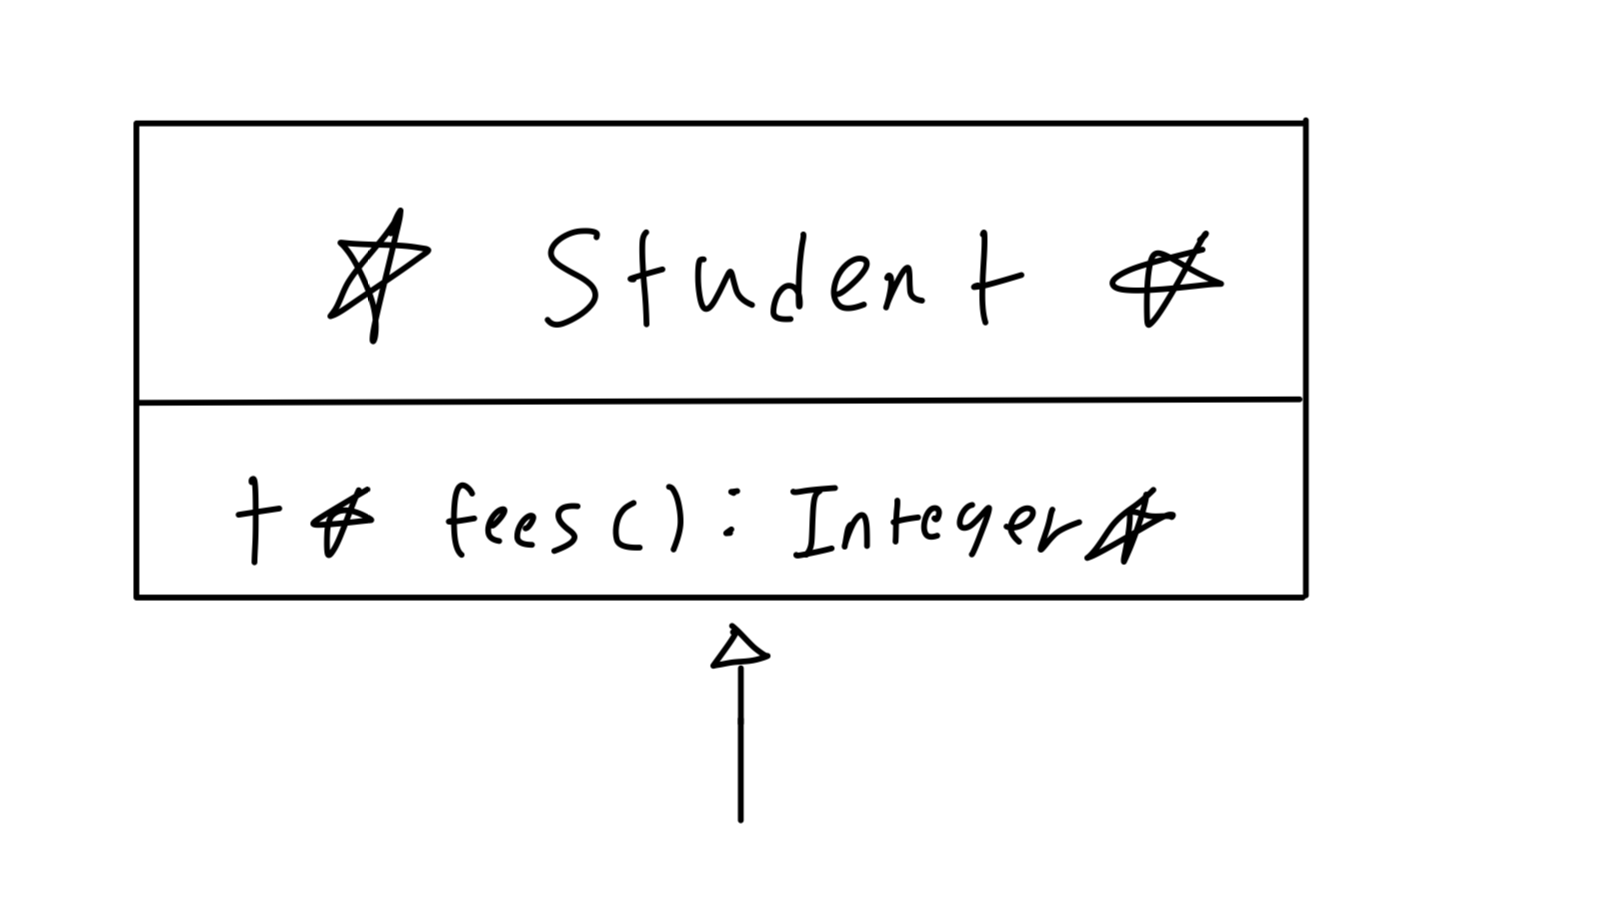 ☆ Student ☆
+ ☆ fees(): Integer☆